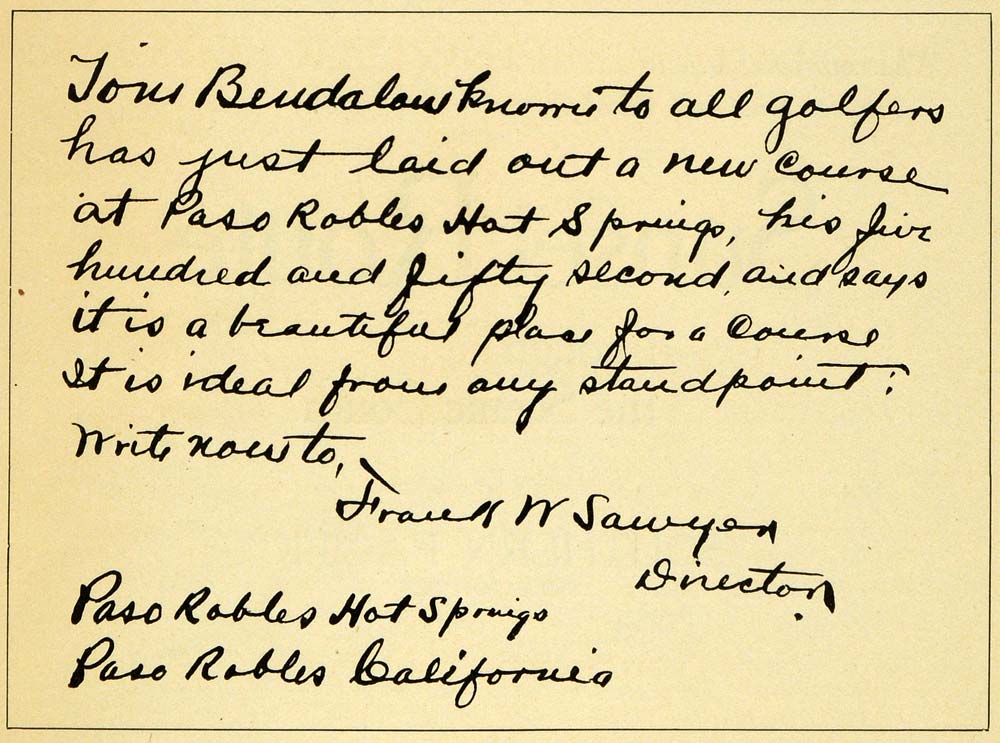 Tom Bendalow known to all golfers
has just laid out a new Course
at Paso Robles Hot Springs, his five
hundred and fifty second, and says
it is a beautiful place for a Course
It is ideal from any standpoint:
Write now to,
Frank W Sawyer
Director.
Paso Robles Hot Springs
Paso Robles California